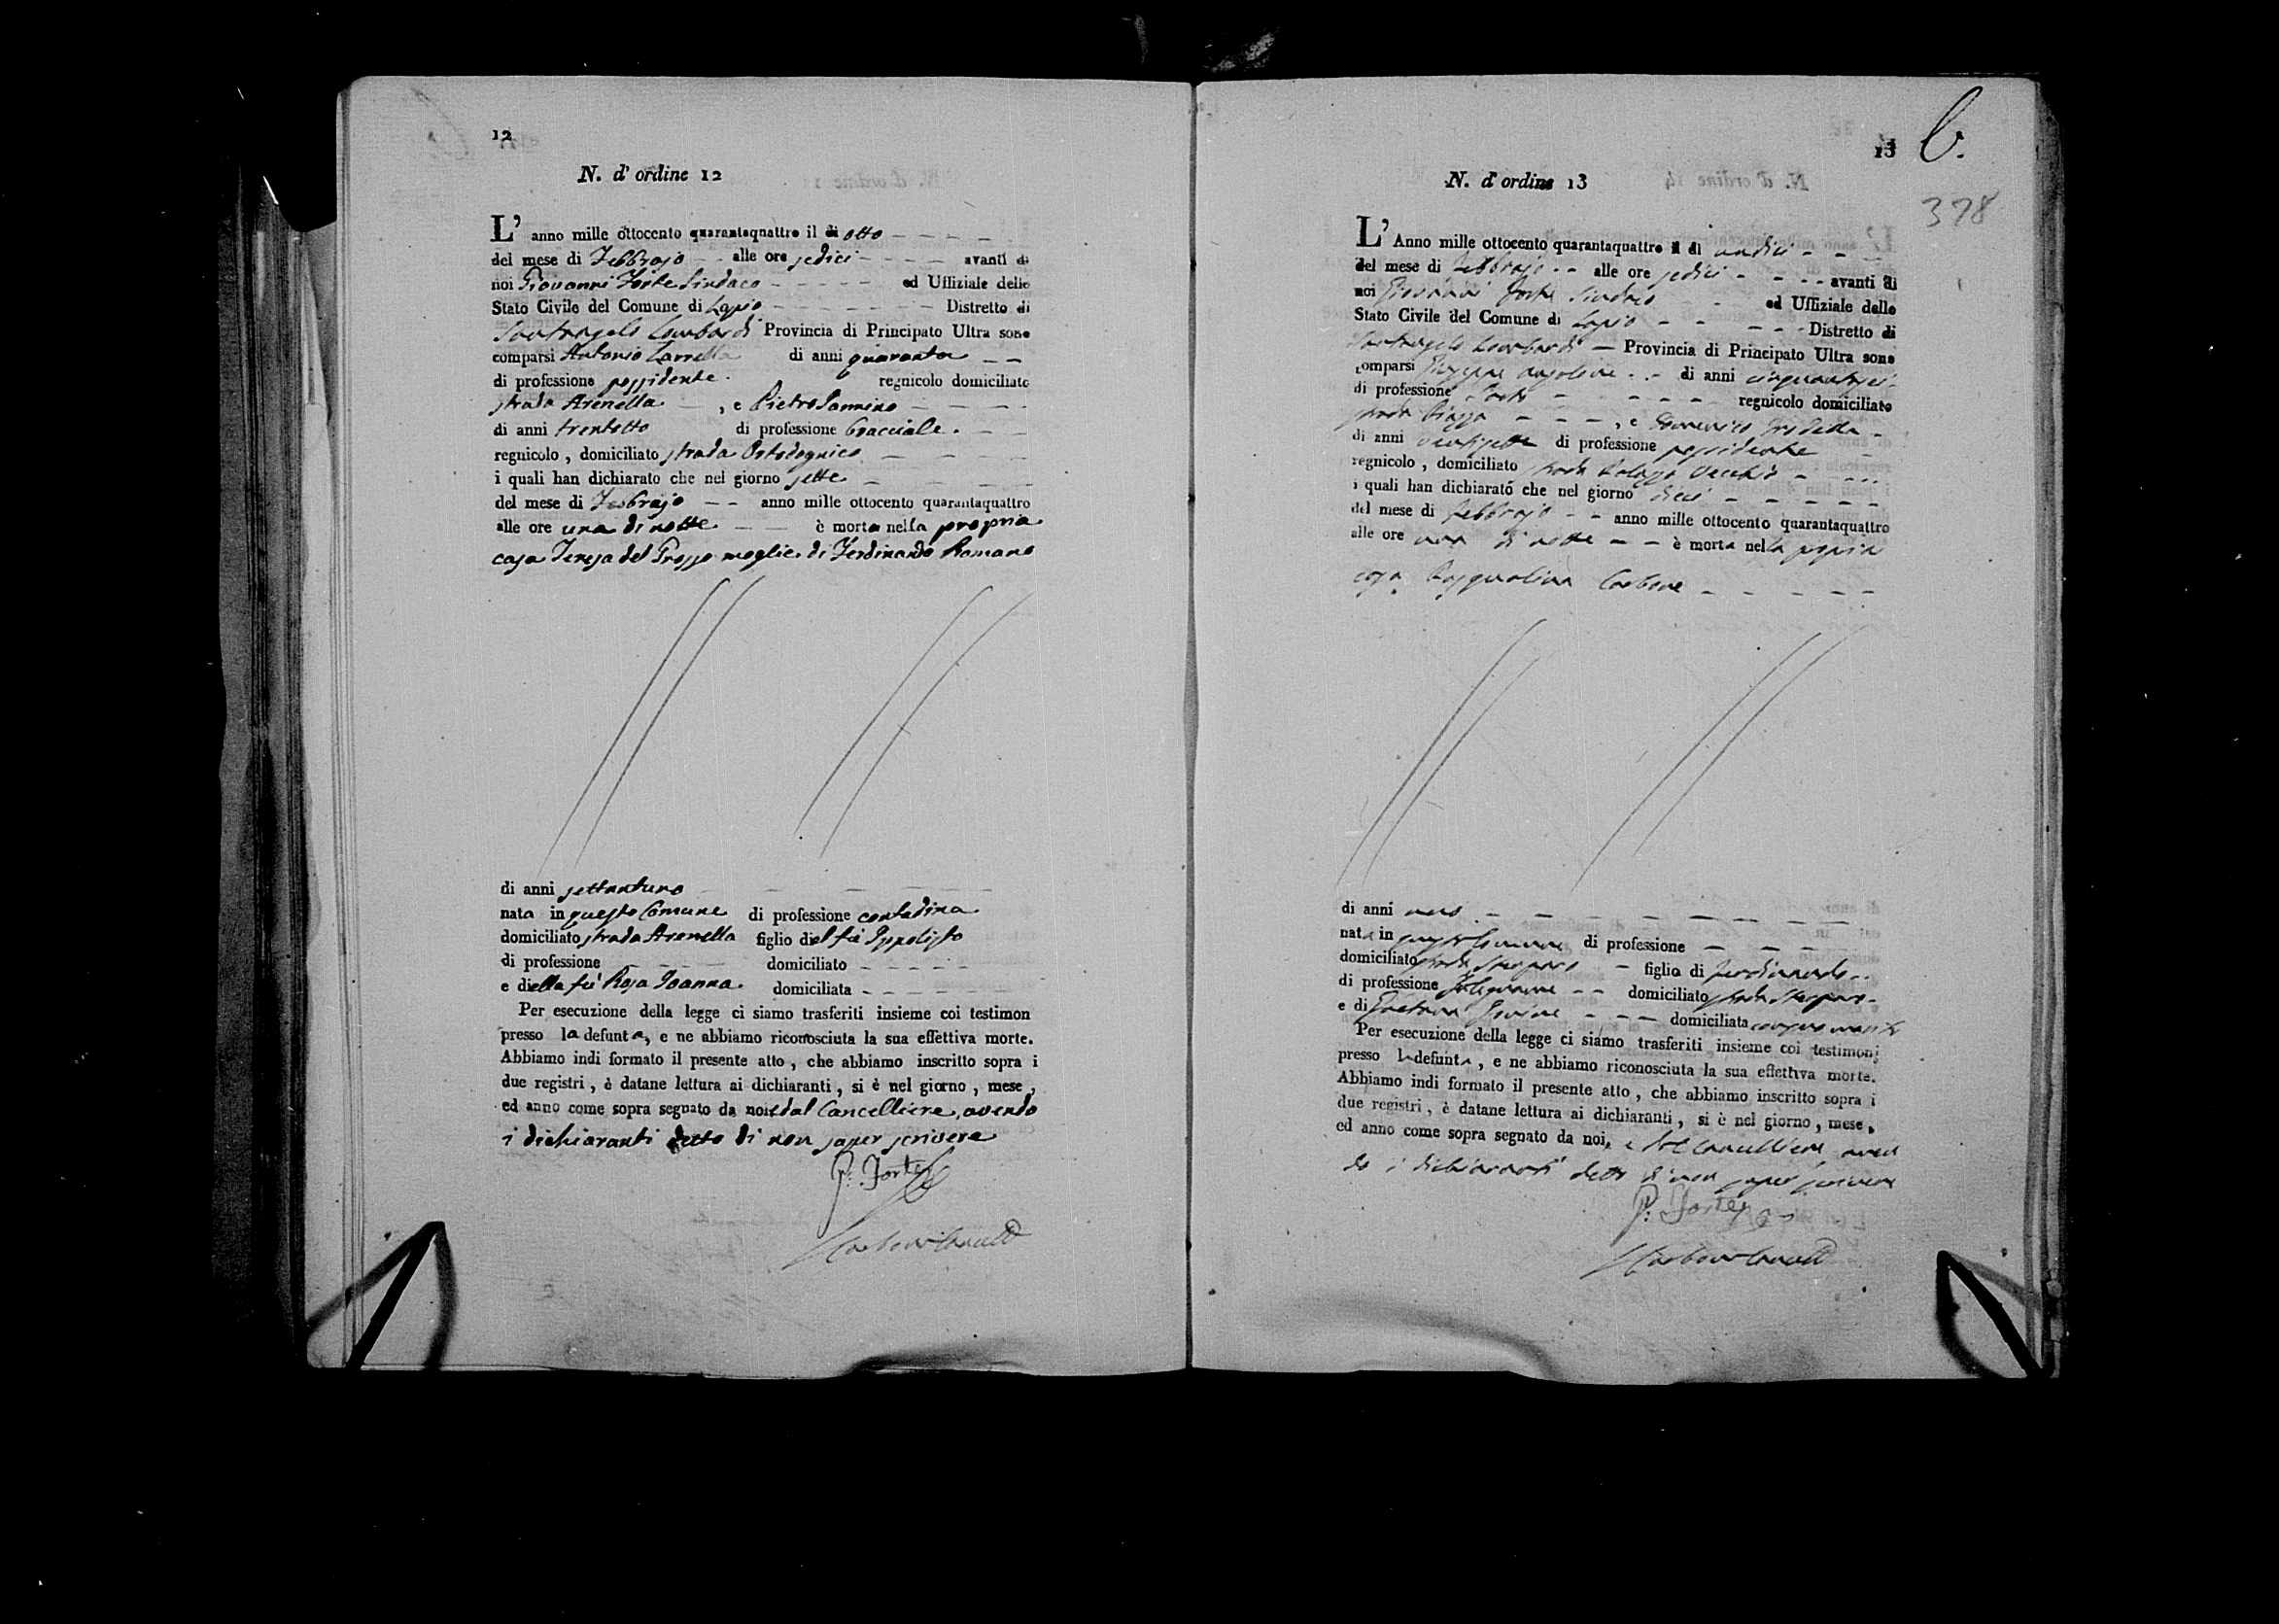 12
N. d' ordine 12
L' anno mille ottocento quarantaquattro il dì otto
del mese di Febbrajo alle ore sedici avanti di
noi Giovanni Forte Sindaco ed Uffiziale dello
Stato Civile del Comune di Lapio Distretto di
Santangelo Lombardi Provincia di Principato Ultra sono
comparsi Antonio di anni quaranta
di professione possidente regnicolo domiciliato
strada Arenella , e Pietro
di anni trentotto di professione bracciale.
regnicolo , domiciliato strada
i quali han dichiarato che nel giorno sette
del mese di Febbrajo anno mille ottocento quarantaquattro
alle ore una di notte è morta nella propria
casa Teresa del Grosso moglie di Ferdinando Romano
di anni settantuno
nata in questo Comune di professione contadina
domiciliato strada Arenella figlio del fù Ippolisto
di professione domiciliato
e della fù Rosa Ioanna. domiciliata
Per esecuzione della legge ci siamo trasferiti insieme coi testimon
presso la defunta, e ne abbiamo riconosciuta la sua effettiva morte.
Abbiamo indi formato il presente atto , che abbiamo inscritto sopra i
due registri , è datane lettura ai dichiaranti , si è nel giorno , mese ,
ed anno come sopra segnato da noi e dal Cancelliere, avendo
i dichiaranti detto di non saper scrivere
G. Forte
13
b.
378
N. d' ordine 13
L' Anno mille ottocento quarantaquattro il dì undici
del mese di Febbrajo alle ore sedici avanti di
noi Giovanni Forte Sindaco ed Uffiziale dello
Stato Civile del Comune di Lapio Distretto di
Santangelo Lombardi Provincia di Principato Ultra sono
comparsi Giuseppe di anni cinquantasei
di professione regnicolo domiciliato
strada Piazza , e Domenico
di anni di professione possidente
regnicolo , domiciliato strada Palazzo Vecchio
i quali han dichiarato che nel giorno dieci
del mese di Febbrajo anno mille ottocento quarantaquattro
alle ore una di notte è morta nella propria
casa Pasqualina Carbone
di anni uno
nata in questo Comune di professione
domiciliato strada figlia di Ferdinando
di professione falegname domiciliato strada
e di Gaetana domiciliata
Per esecuzione della legge ci siamo trasferiti insieme coi testimonj
presso la defunta , e ne abbiamo riconosciuta la sua effettiva morte.
Abbiamo indi formato il presente atto , che abbiamo inscritto sopra i
due registri , è datane lettura ai dichiaranti , si è nel giorno , mese ,
ed anno come sopra segnato da noi, e dal Cancelliere aven
do i dichiaranti detto di non saper scrivere
G. Forte